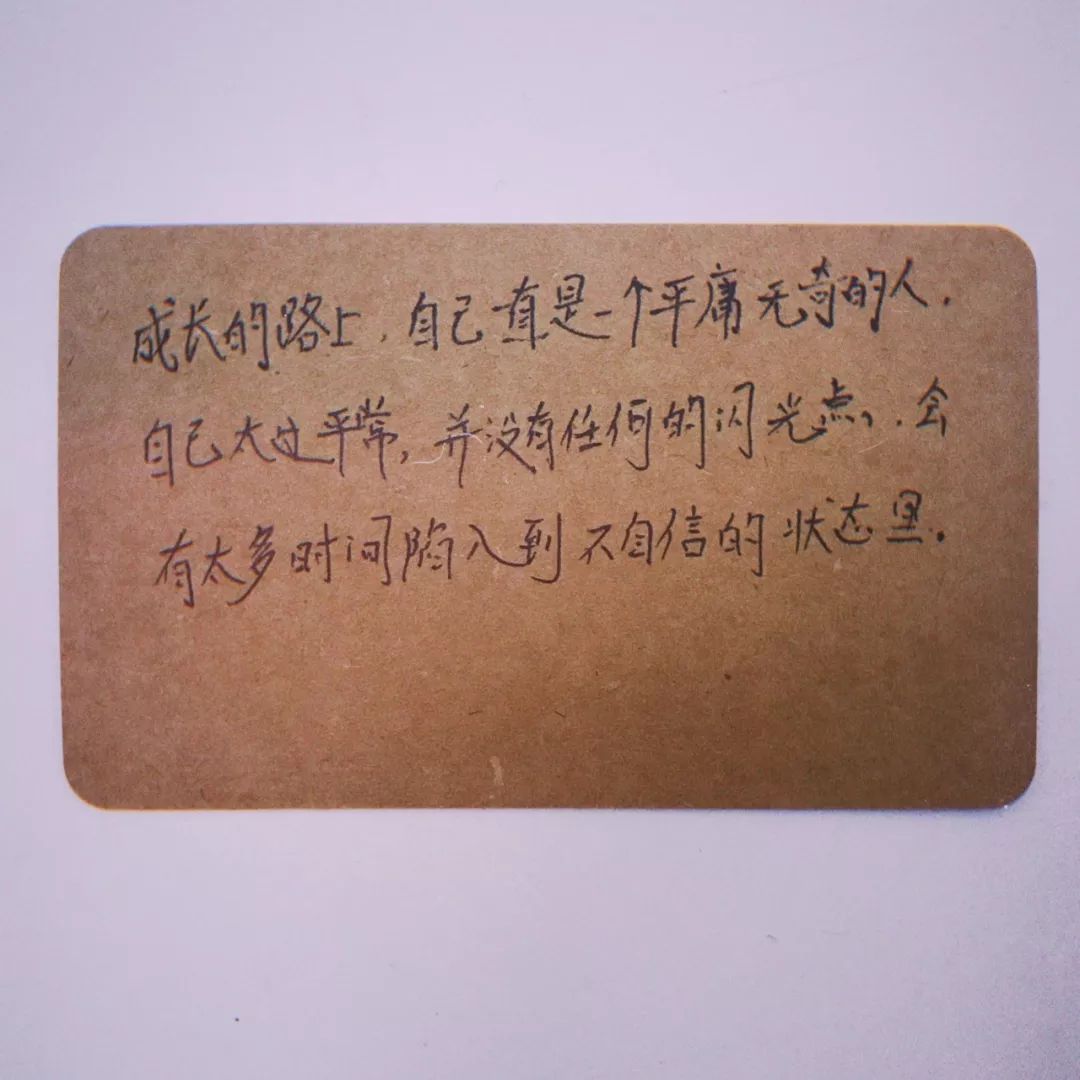 成长的路上,自己一直是一个平庸无奇的人.
自己太过平常,并没有任何的闪光点,会
有太多时间陷入到不自信的状态里.